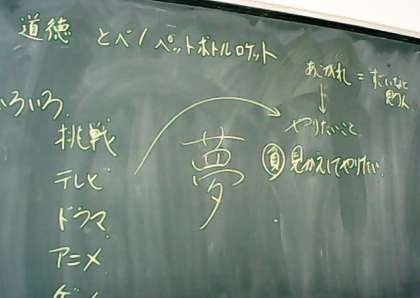 道徳 とべ！ペットボトルロケット
あこがれ = すごいなと
思う人
↓
やりたいこと
いろいろ
挑戦
テレビ
ドラマ
アニメ
夢
負 見かえしてやりたい